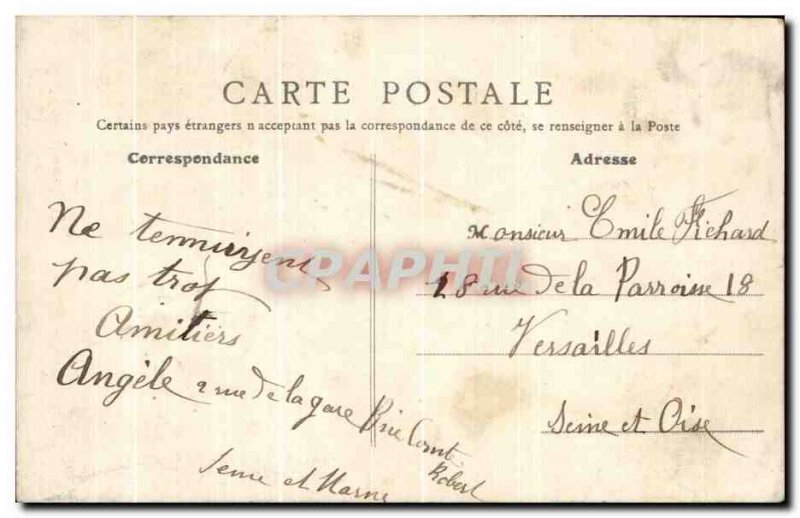 CARTE POSTALE
Certains pays étrangers n acceptant pas la correspondance de ce côté, se renseigner à la Poste
Correspondance
Adresse
Ne
pas trop
Amitiers
Angèle 2 rue de la gare Brie Comte
Robert
Seine et Marne
Monsieur Emile Fichard
18 rue de la Parroisse 18
Versailles
Seine et Oise
CPAPHIL